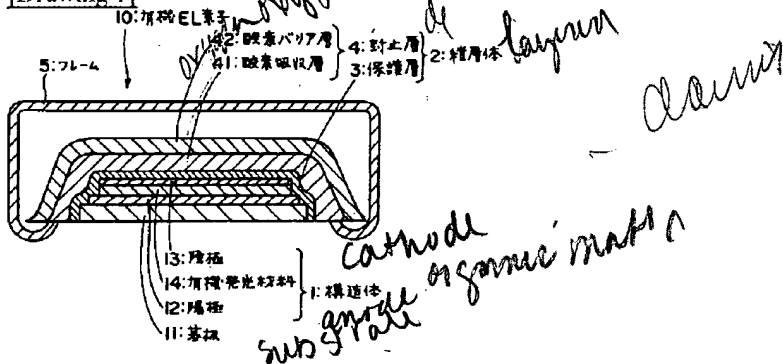 [Drawing 1]
10:有機EL素子
42:酸素バリア層
41:酸素吸収層
4:封止層
3:保護層
2:積層体
5:フレーム
layer
13:陰極
14:有機発光材料
12:陽極
11:基板
1:構造体
cathode
organic
anode
substrate